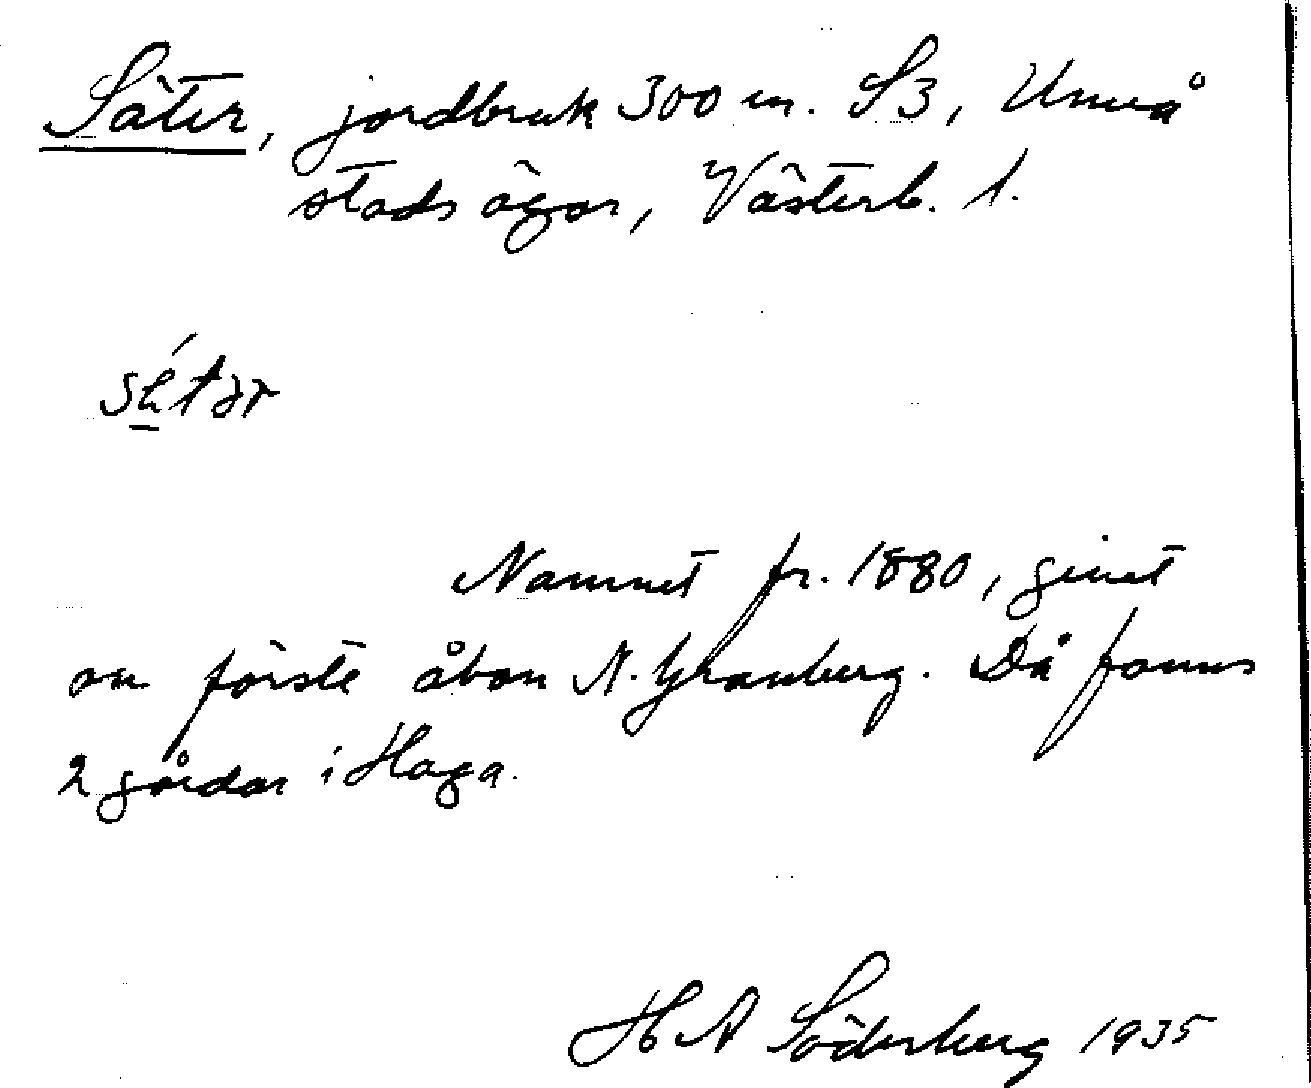 Säter, jordbruk 300 m. S3, Umeå
stads ägor, Västerb. l.
Namnet fr. 1880, givet
av förste åbon N. Granberg. Då fanns
2 gårdar i Haga.
H A Söderberg 1935